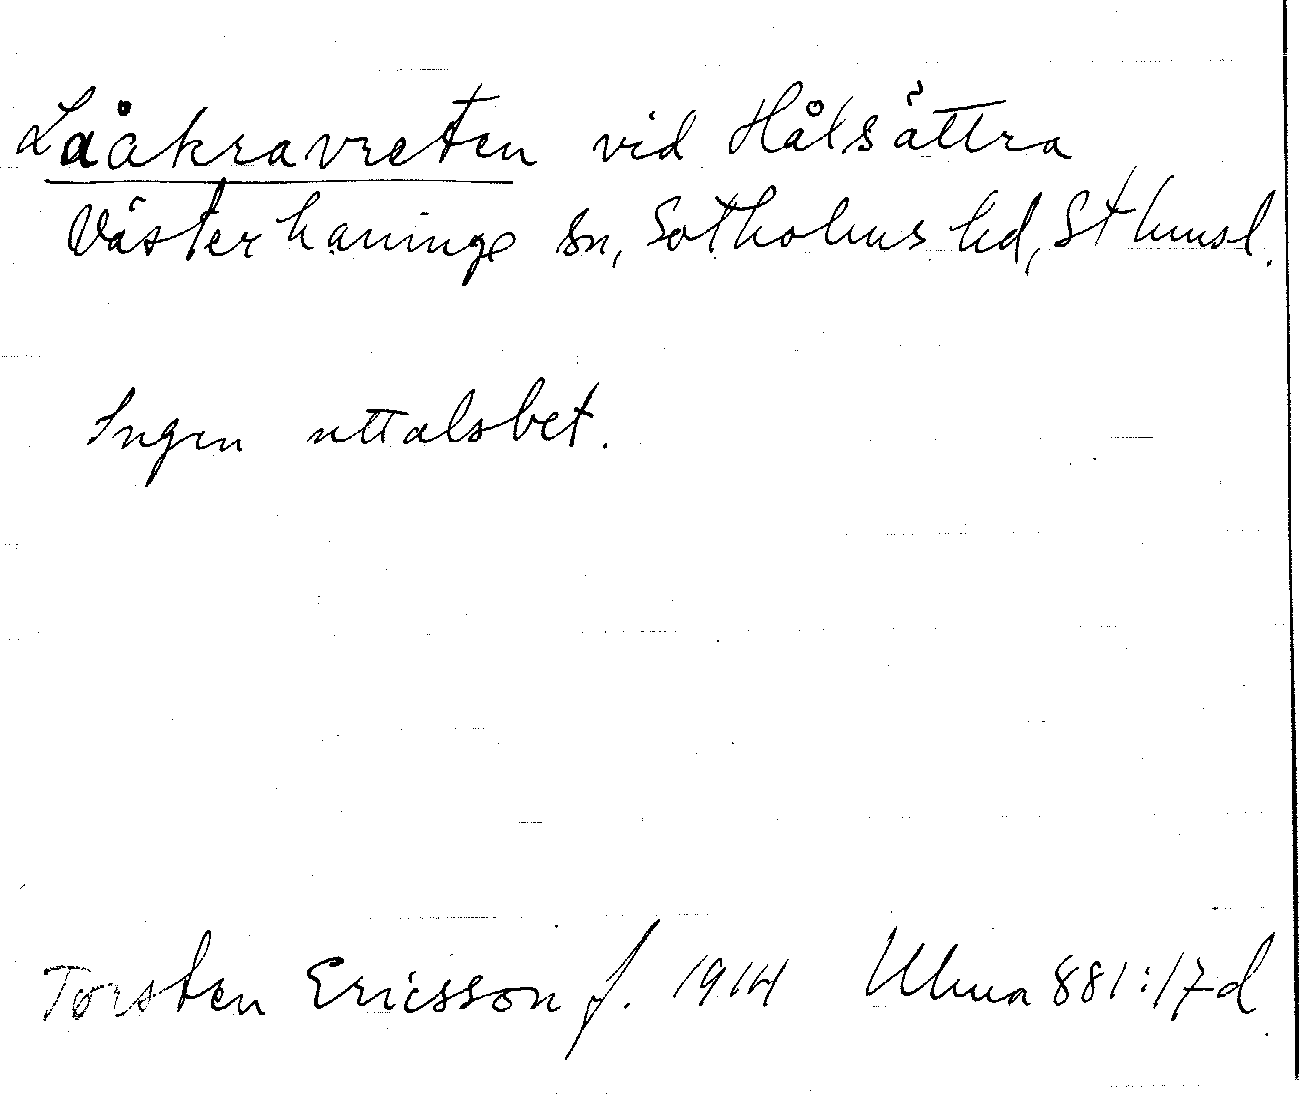 Laåkravreten vid Hålsättra
Västerhaninge sn, Sotholms hd, Sthmsl.
Ingen uttalsbet.
Torsten Ericsson f. 1914 Ulma 881:17d